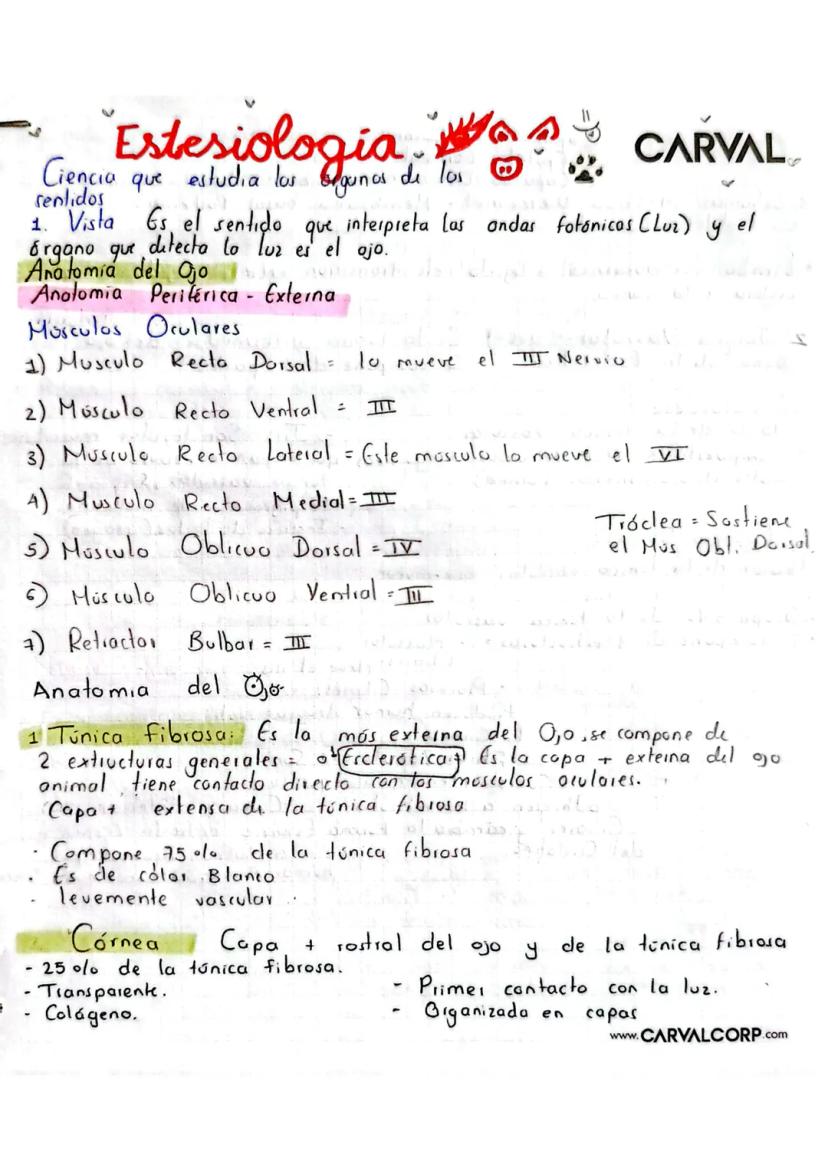 Estesiología
CARVAL
Ciencia que estudia los órganos de los
sentidos
1. Vista Es el sentido que interpreta las ondas fotónicas (Luz) y el
órgano que detecta la luz es el ojo.
Anatomía del Ojo
Anatomía Periférica - Externa
Músculos Oculares
1) Musculo Recto Dorsal = lo mueve el III Nervio
2) Músculo Recto Ventral = III
3) Músculo Recto Lateral = Este músculo lo mueve el VI
4) Musculo Recto Medial = III
Tróclea = Sostiene
el Mús Obl. Dorsal.
5) Músculo Oblicuo Dorsal = IV
6) Músculo Oblicuo Ventral = III
7) Retractor Bulbar = III
Anatomia del Ojo
1 Túnica fibrosa: Es la más externa del Ojo, se compone de
2 extructuras generales = Esclerótica: Es la copa + externa del ojo
animal, tiene contacto directo con los músculos oculares.
Capa + extensa de la túnica fibrosa
· Compone 75 % de la túnica fibrosa
· Es de color Blanco
- levemente vascular
Córnea Capa + rostral del ojo y de la túnica fibrosa
- 25 % de la túnica fibrosa.
- Transparente.
- Primer contacto con la luz.
- Colágeno.
- Organizada en capas
www.CARVALCORP.com